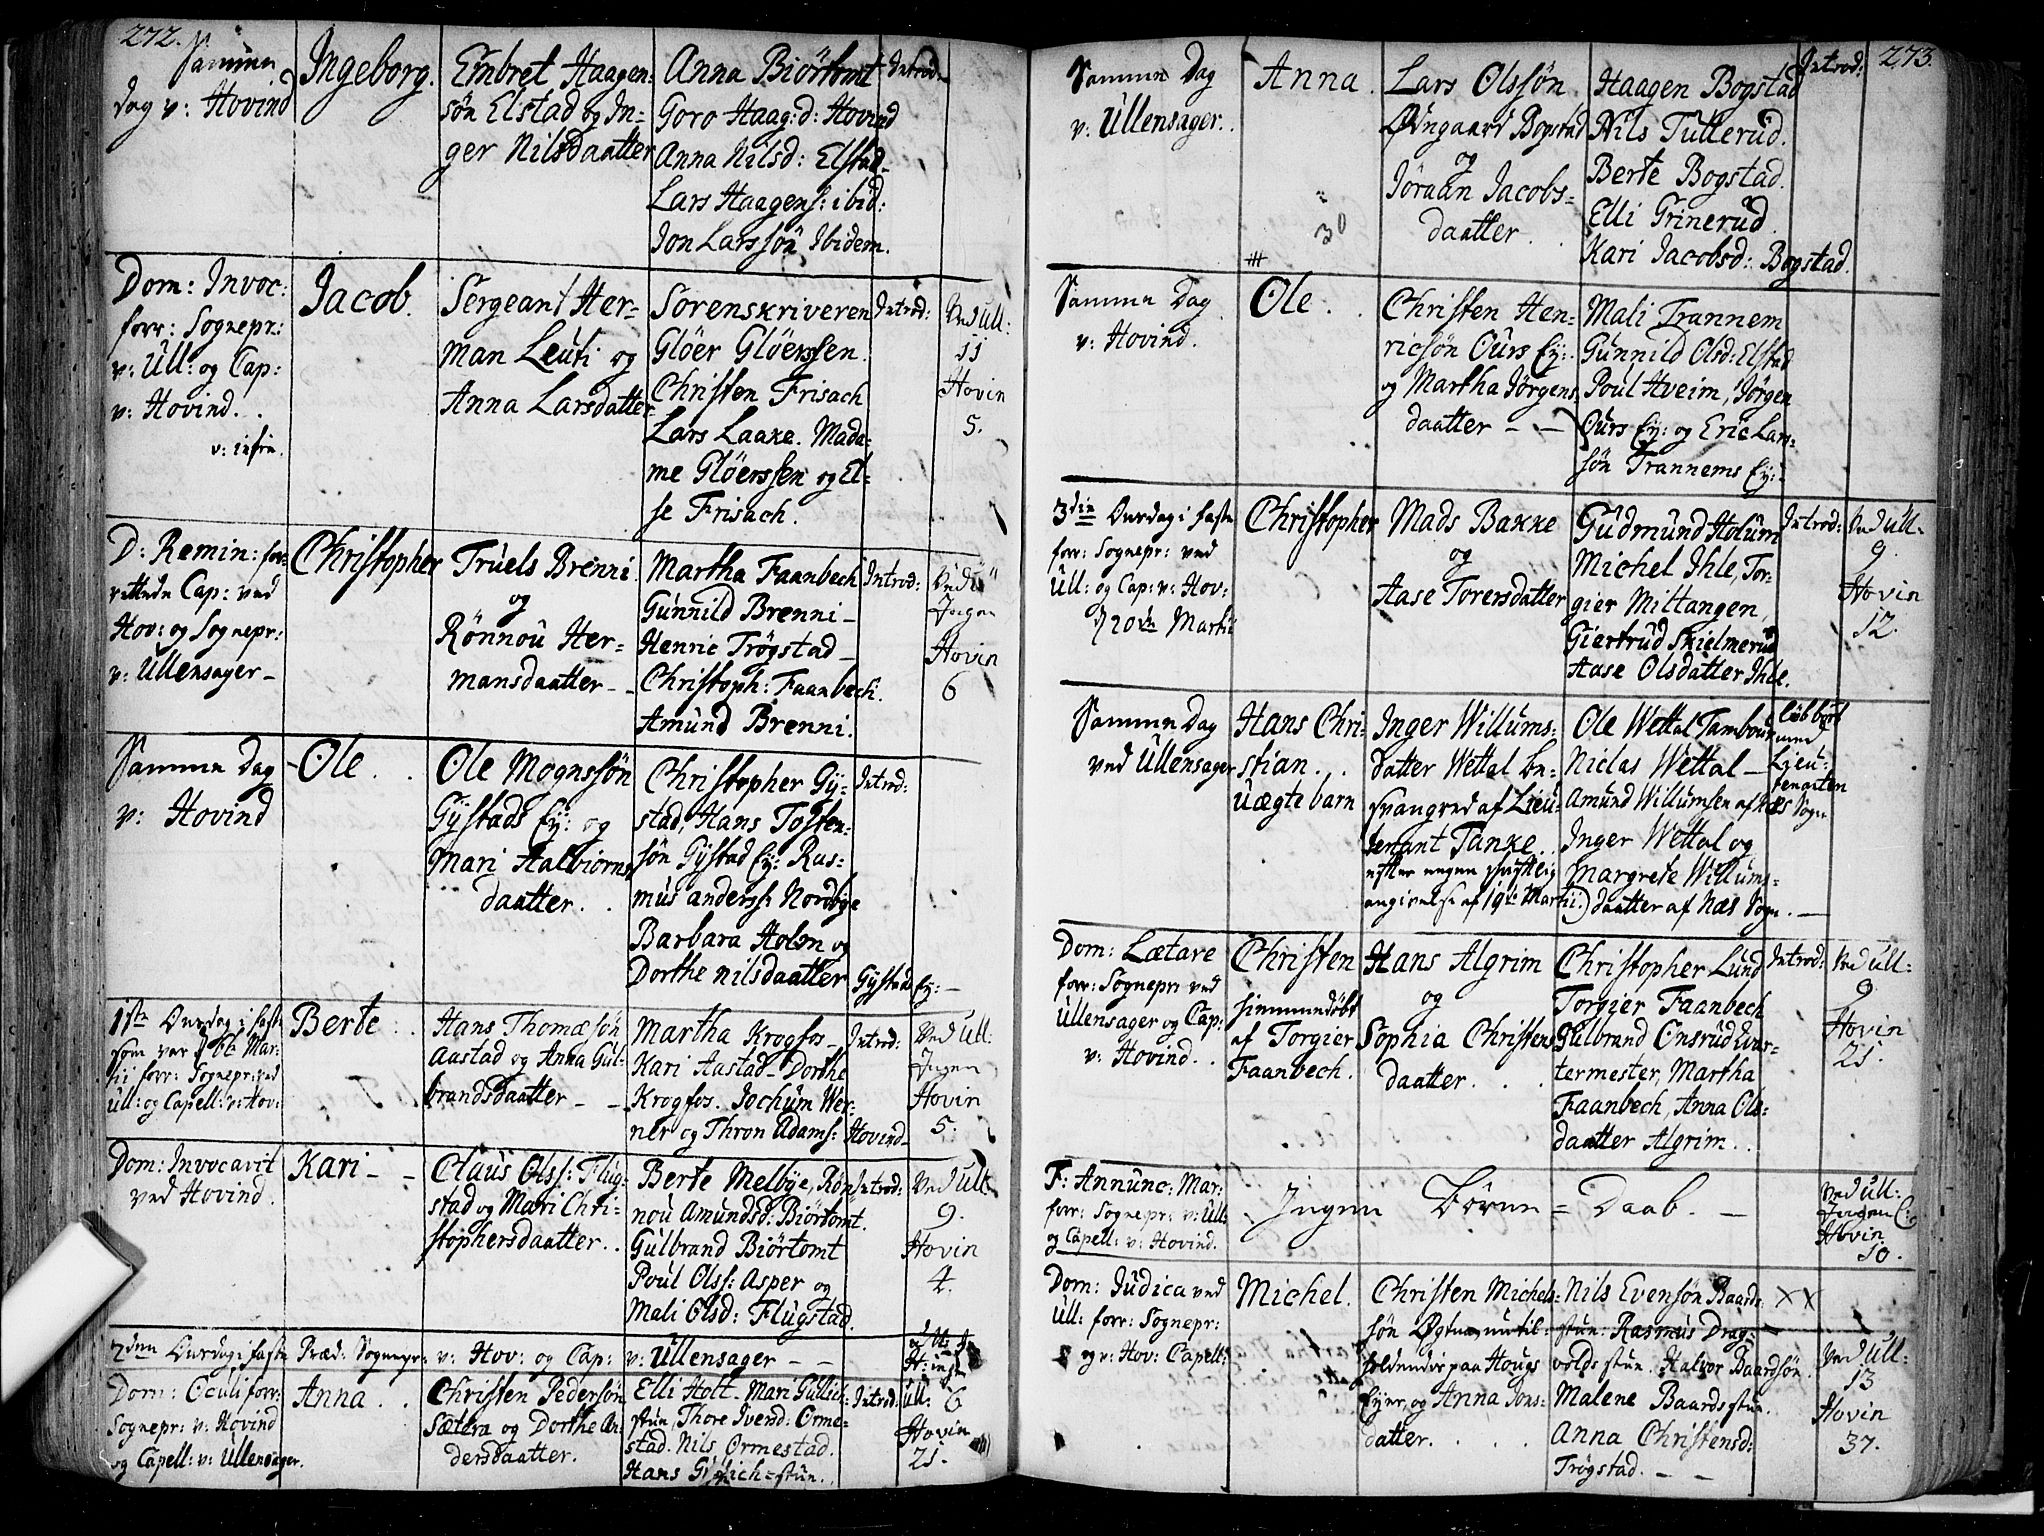 272.
Samme
dag v: Hovind
Ingeborg.
Embret Haagen=
søn Elstad og In=
ger Nilsdaatter
Anna Biörtomt
Goro Haag:d: Hovind
Anna Nilsd: Elstad
Lars Haagens: ibid:
Jon Larssön Ibidem.
Introd:
Dom: Invoc:
forr: Sognepr:
v: Ull: og Cap:
v: Hovind.
v: infra.
Jacob.
Sergeant Her=
man Leuti og
Anna Larsdatter
Sorenskriveren
Glöer Glöerssen.
Christen Frisach
Lars Laake. Mada=
me Glöerssen og El=
se Frisach.
Introd:
Ved Ull:
11
Hovin
5.
D: Remin: for=
rettede Cap: ved
Hov: og Sognepr:
v: Ullensager–
Christopher
Truels Brenni
og
Rönnou Her=
mansdaatter–
Martha Faanbech
Gunnild Brenni–
Henric Trögstad–
Christoph: Faanbech.
Amund Brenni.
Introd:
Ved Ull
Ingen
Hovin
6
Samme Dag
v: Hovind
Ole
Ole Mognssön
Gystads Ey: og
Mari Aalbiörns
daatter.
Christopher Gy=
stad, Hans Tosten=
søn Gystad Ey: Ras=
mus anderss: Nordbye
Barbara Holm og
Dorthe nilsdaatter Gystads Ey:–
Introd:
1ste Onsdag i faste
som var d 6te Mar=
tii forr: Sognepr: ved
Ull: og Capell: v: Hov:
Berte
Hans Thomæsön
Aastad og Anna Gul=
brandsdaatter – –
Martha Krogfos–
Kari Aastad– Dorthe
Krogfos. Jochum Wer=
ner og Thron Adams: Hovind–
Introd:
Ved Ull:
Ingen
Hovin
5.
Dom: Invocavit
ved Hovind.
Kari – –
Claus Olss: Flug=
stad og Mari Chri=
stophersdaatter.
Berte Melbye, Rön=
nou Amundsd: Biörtomt.
Gulbrand Biörtomt
Poul Olss: Asper og
Mali Olsd: Flugstad.
Introd:
Ved Ull:
9.
Hovin
4.
2den Onsdag i faste Præd: Sognepr: v: Hov: og Cap: v: Ullensager – –
Dom: Oculi forr:
Sognepr: v: Hovind
og Capell: v: Ullensager.
Anna
Christen Pedersön
Sætra og Dorthe An=
dersdaatter.
Elli Holt– Mari Gullich=
stun, Thore Iversd: Orme=
stad. Nils Ormestad.
Hans Gullich=stun.
Introd:
Ull: 6
Hovin
21.
273.
Samme Dag
v: Ullensager.
Anna.
Lars Olssön
Ødegaard Bogstad
og
Jöraan Jacobs=
daatter
30
Haagen Bogstad
Nils Tutterud.
Berte Bogstad.
Elli Trinerud.
Kari Jacobsd: Bogstad.
Introd:
Samme Dag
v: Hovind.
Ole
Christen Hen=
ricsön Ours Ey:
og Martha Jörgens
daatter – –
Mali Trannem
Gunnild Olsd: Elstad
Poul Hveim, Jörgen
Ours Ey: og Eric Lars=
søn Trannems Ey:
3die Onsdag i faste
forr: Sognepr: ved
Ull: og Cap: v: Hov:
d 20de Martii
Christopher
Mads Bakke
og
Aase Torersdatter
Gudmund Holum
Michel Ihle, Tor=
gier Mittangen,
Giertrud Skielmerud
Aase Olsdatter Ihle.
Introd:
Ved Ull:
9.
Hovin
12.
Samme Dag
ved Ullensager
Hans Chri=
stian.
Uægte barn
Inger Willums=
datter Wettal be=
svangred af Lieu=
tenant Tanke.
efter egen skriftlig
angivelse af 19de Martii.
Ole Wettal Tambour
Niclas Wettal –
Amund Willumsen af Næs Sogn
Inger Wettal og
Margrete Willums=
daatter af Næs Sogn. –
med
Lieu=
tenanten
Dom: Lætare
forr: Sognepr: ved
Ullensager og Cap:
v: Hovind.
Christen
hiemmedöbt
af Torgier
Faanbech.
Hans Algrim
og
Sophia Christens
daatter.
Christopher Lund
Torgier Faanbech
Gulbrand Onsrud Qvar=
termester, Martha
Faanbech, Anna Ols=
daatter Algrim.
Introd:
Ved Ull:
9
Hovin
21.
F: Annunc: Mar:
forr: Sognepr: v: Ull:
og Capell: v: Hovind.
Ingen Börne= Daab. –
Ved Ull:
Ingen C:
Hovin
10.
Dom: Judica ved
Ull: forr: Sognepr:
og v: Hov: Capell:
Michel.
Christen Michels=
søn
holdende paa Hougs
Eyer, og Anna Jons=
datter.
Nils Evensön Baards
stun: Rasmus Drag=
volds stun. Halvor Baardsön
Malene Baards stun.
Anna Christensd:
Trögstad. – –
XX
Ved Ull:
13
Hovin
37.